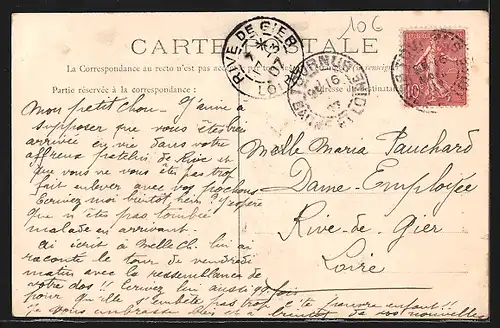 106
CARTE POSTALE
La Correspondance au recto n'est pas
Partie réservée à la correspondance :
RIVE DE GIER
LOIRE
TOURNUS
SAONE ET LOIRE
10
Mon petit Chou - J'aime à
supposer que vous êtes bien
arrivée en vie dans votre
affreux de Rive et
que vous ne vous êtes pas trop
fait enlever avec vos
Ecrivez moi bientôt, hein? J'espère
que n'êtes pas tombée
malade en arrivant.
ai écrit à Melle Ch. lui ai
raconté le tour de vendredi
matin avec la ressemblance de
votre dos!! Ecrivez lui aussi qq fois
pour qu'elle s'embête pas trop c'te pauvre enfant!!
je vous embrasse à bientôt de vos nouvelles
Melle Maria Pauchard
Dame-Employée
Rive-de-Gier
Loire